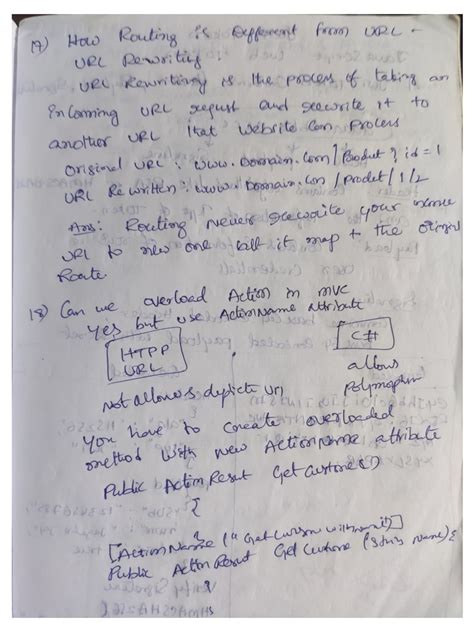 17) How Routing is Different from URL -
URL Rewriting
URL Rewriting is the process of taking an
Incoming URL request and rewrite it to
another URL that website Can Process
Original URL : www.Domain.Com/Product?id=1
URL Rewritten : www.Domain.Con/Prodct/1/2
Ans: Routing never rewrite your
URL to new one it map to the
Route.
18) Can we overload Action in MVC
Yes but use ActionName attribute
HTPP
URL
C#
Not allows url
allows
You have to create overloaded
method with new ActionName attribute
Public Action Result
{
}
[ActionName ("
Public Action Result (String Name) {
}